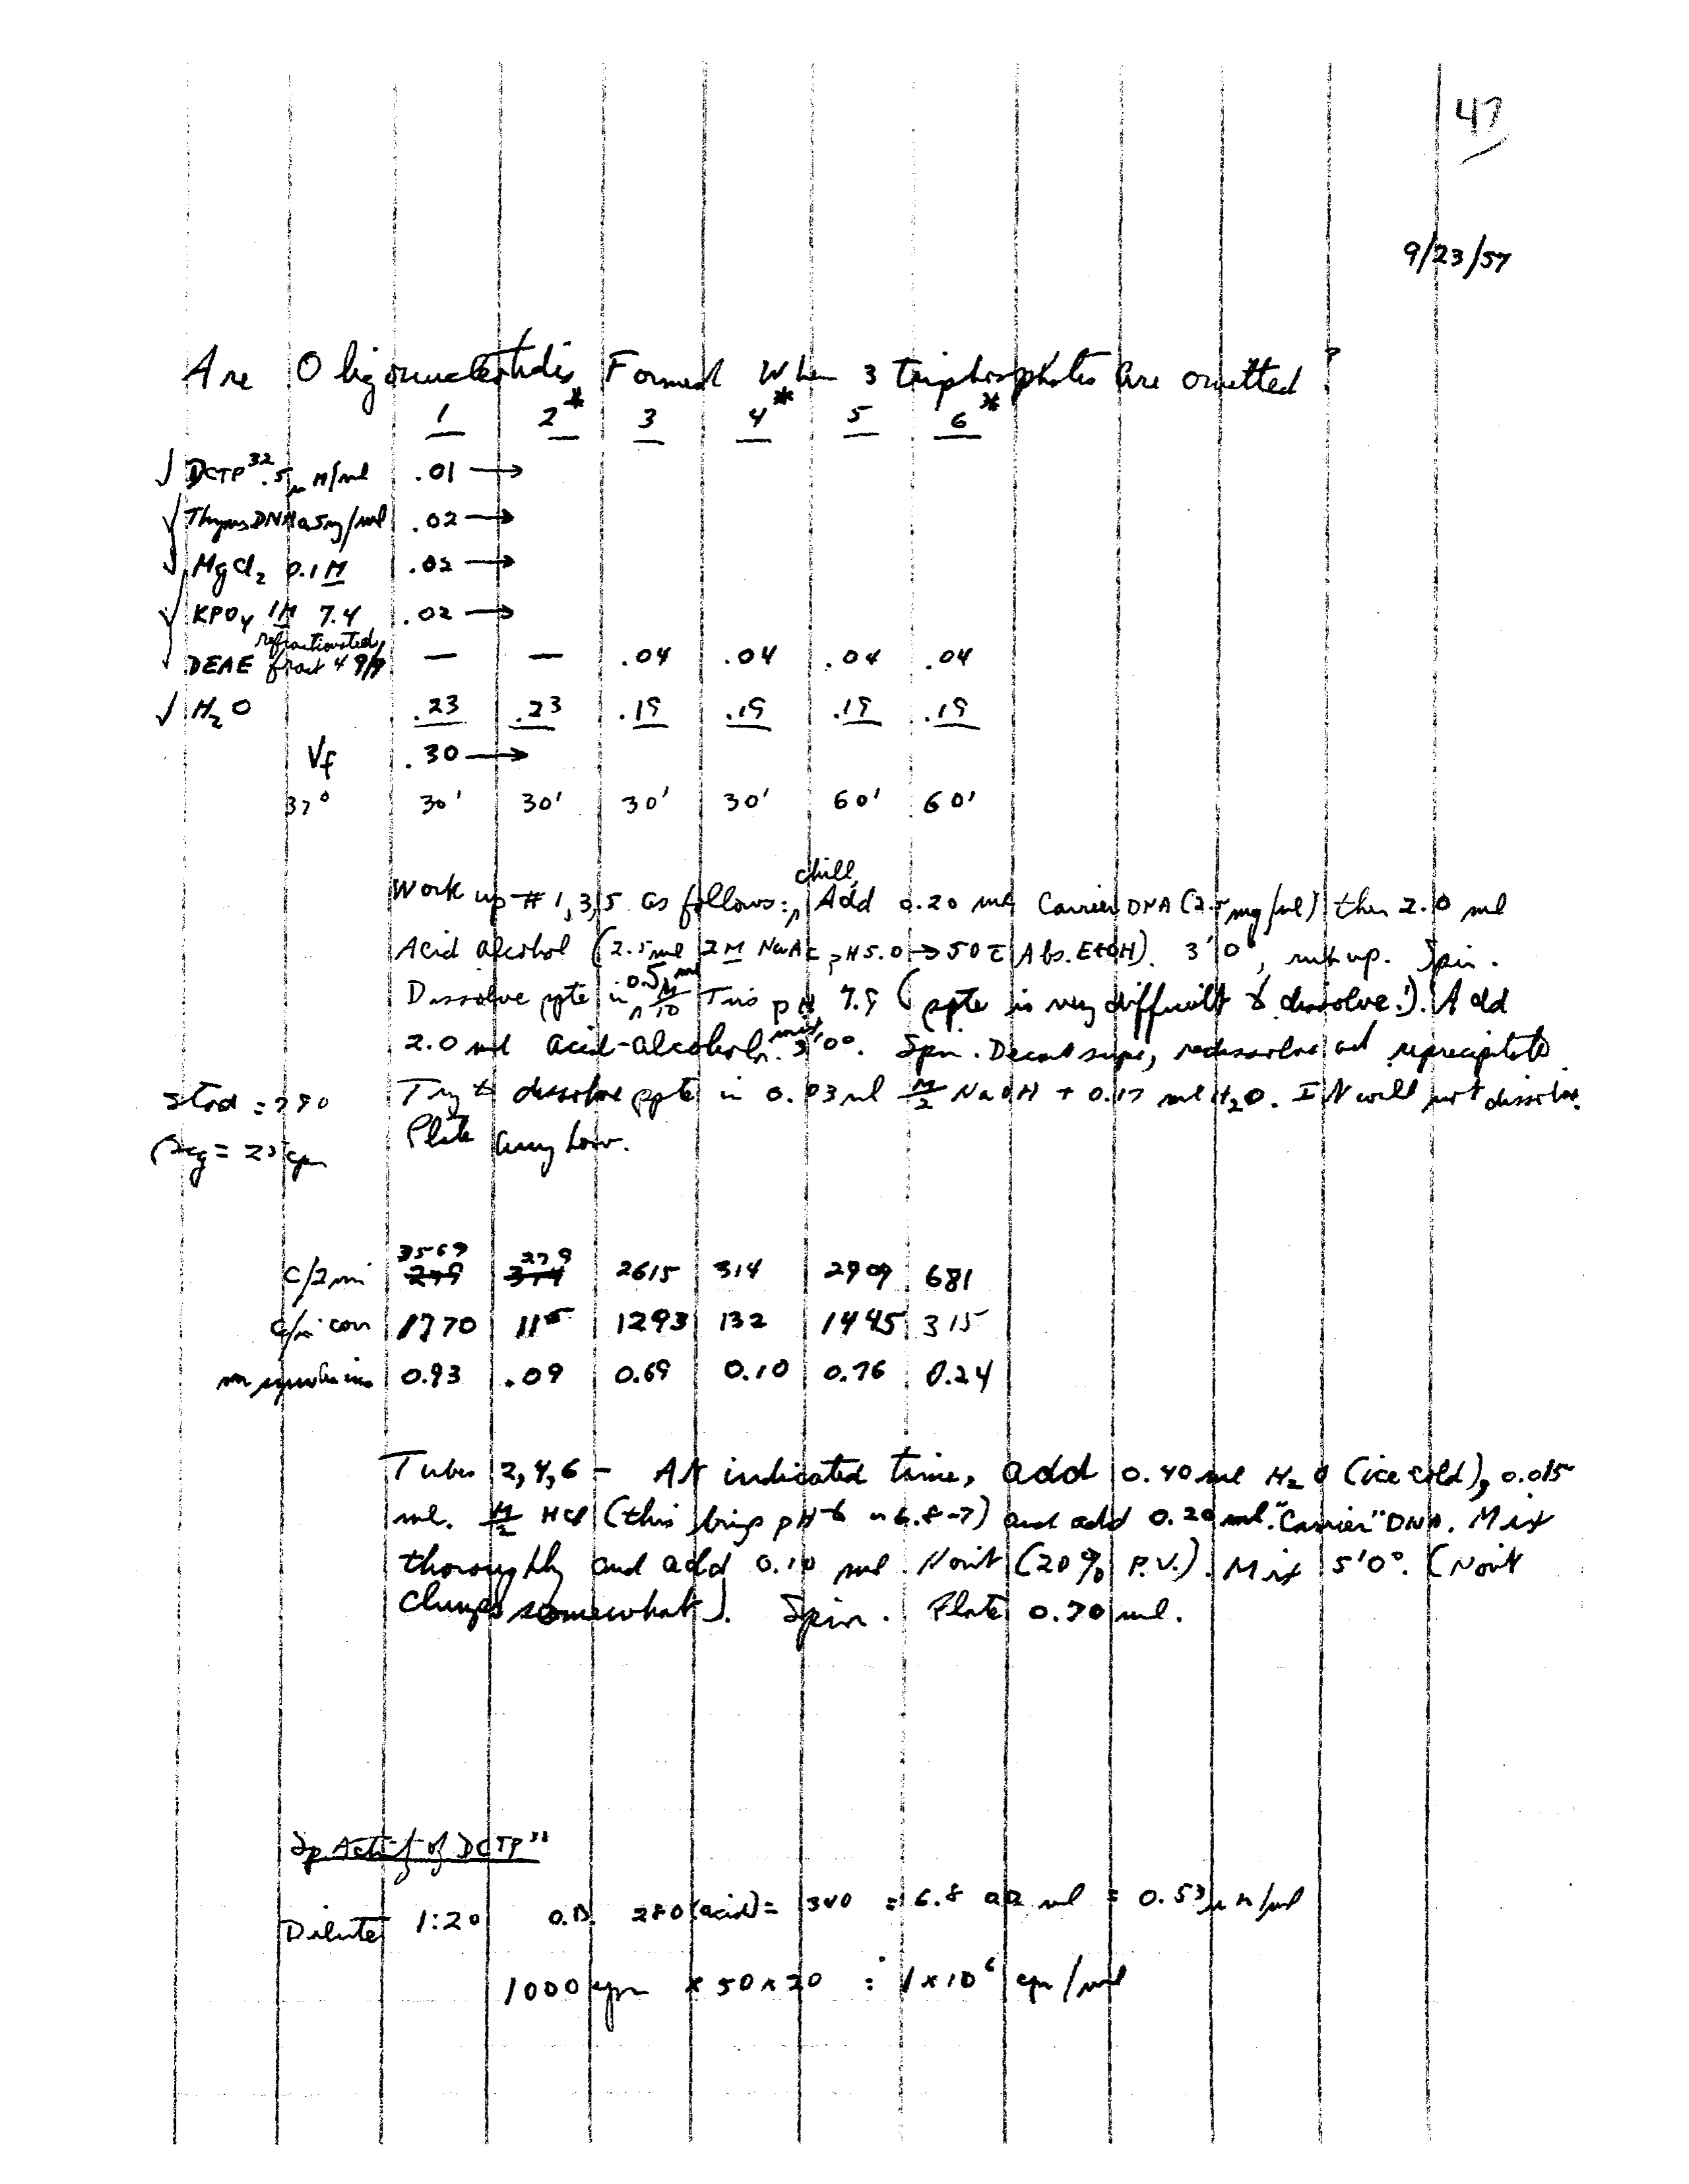 47
9/23/57
Are Oligonucleotides Formed When 3 triphosphates are omitted?
1 2* 3 4* 5 6*
√ DCTP32 .5 μM/ml .01 →
√ Thymus DNA 0.5mg/ml .02 →
√ MgCl2 0.1M .02 →
√ KPO4 1M 7.4 .02 →
refractionated
√ DEAE fract 4 9/9 — — .04 .04 .04 .04
√ H2O .23 .23 .19 .19 .19 .19
Vf .30 →
37° 30' 30' 30' 30' 60' 60'
chill,
Work up # 1,3,5 as follows: Add 0.20 ml Carrier DNA (2.5 mg/ml) then 2.0 ml
Acid alcohol (2.5 ml 2M NaAc pH 5.0 → 50 c̄ Abs. EtOH). 3'0°, up. Spin.
Dissolve ppte in 0.5 ml M/10 Tris pH 7.9 (ppte is very difficult to dissolve!). Add
2.0 ml acid-alcohol. mix, 3'0°. Spin. Decant supe, redissolve and reprecipitate
Try to dissolve ppte in 0.03 ml M/2 NaOH + 0.17 ml H2O. It will not dissolve.
Plate anyhow.
Stnd = 790
Bcg = 25 cpm
3569 279
c/2 mi 279 314 2615 314 2909 681
c/m corr 1770 115 1293 132 1445 315
0.93 .09 0.69 0.10 0.76 0.24
Tubes 2,4,6 - At indicated time, add 0.40 ml H2O (ice cold), 0.015
ml. M/2 HCl (this brings pH to 6.8-7) and add 0.20 ml. "Carrier" DNA. Mix
thoroughly and add 0.10 ml Norit (20% P.V.). Mix 5'0°. (Norit
clumps somewhat). Spin. Plate 0.70 ml.
Sp. Actif of DCTP32
Dilute 1:20 O.D. 280 (acid) = 340 = 6.8 ml = 0.53 μM/ml
1000 cpm × 50 × 20 = 1 × 10^6 cpm/ml